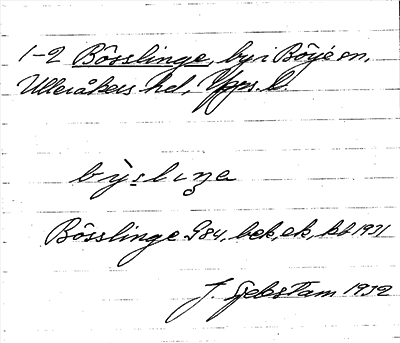 1-2 Bösslinge, by i Böije sn,
Ulleråkers hd, Upps. l.
by̏slıŋa
Bösslinge G84, bek, ek, kb 1931
J. Sjebstam 1932